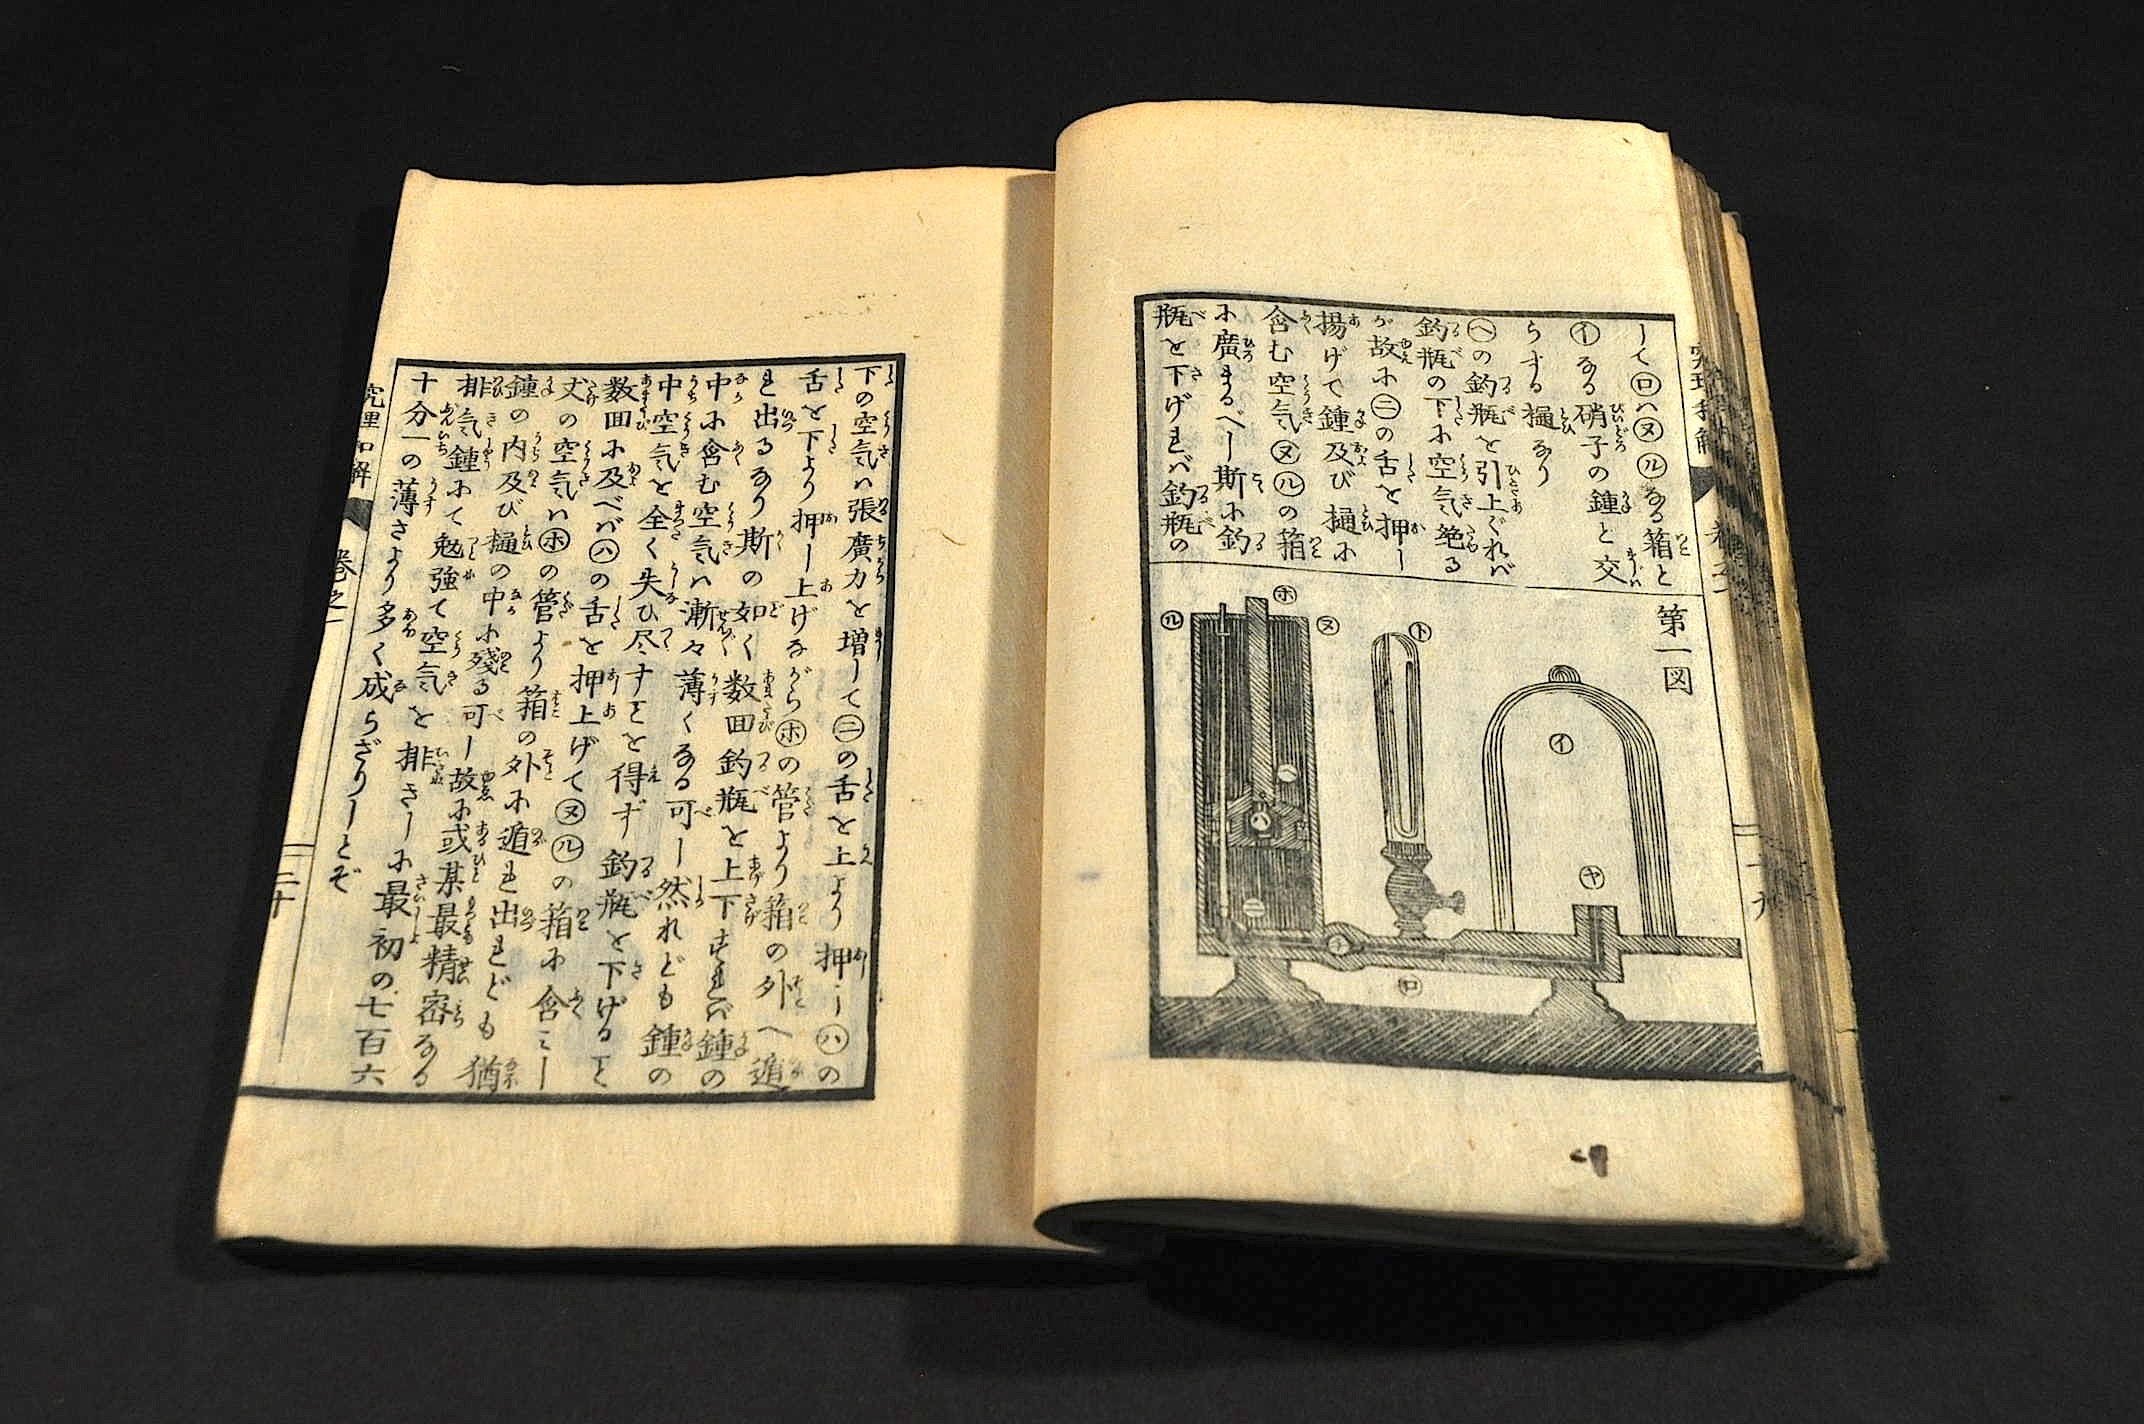 して㋺ハ㋦㋸なる箱と
㋑なる硝子の鍾と交
らする樋なり
㋬の釣瓶を引上ぐれバ
釣瓶の下に空気絶る
が故に㋥の舌を押し
揚げて鍾及び樋に
含む空気㋦㋸の箱
に廣まるべし斯に釣
瓶を下げれバ釣瓶の
第一図
㋸
㋭
㋦
㋣
㋑
㋬
㋩
㋥
㋳
㋺
下の空気ハ張廣力を増して㋥の舌を上より押し㋩の
舌を下より押し上げながら㋭の管より箱の外へ遁
れ出るなり斯の如く数回釣瓶を上下すれバ鍾の
中に含む空気ハ漸々薄くなる可し然れども鍾の
中空気を全く失ひ尽すことを得ず釣瓶を下げること
数回に及べバ㋩の舌を押上げて㋦㋸の箱に含ミし
丈の空気ハ㋭の管より箱の外に遁れ出れども猶
鍾の内及び樋の中に残る可し故に或某最精密なる
排気鍾にて勉強て空気を排きしに最初の七百六
十分一の薄さより多く成らざりしとぞ
究理和解
巻之一
二十